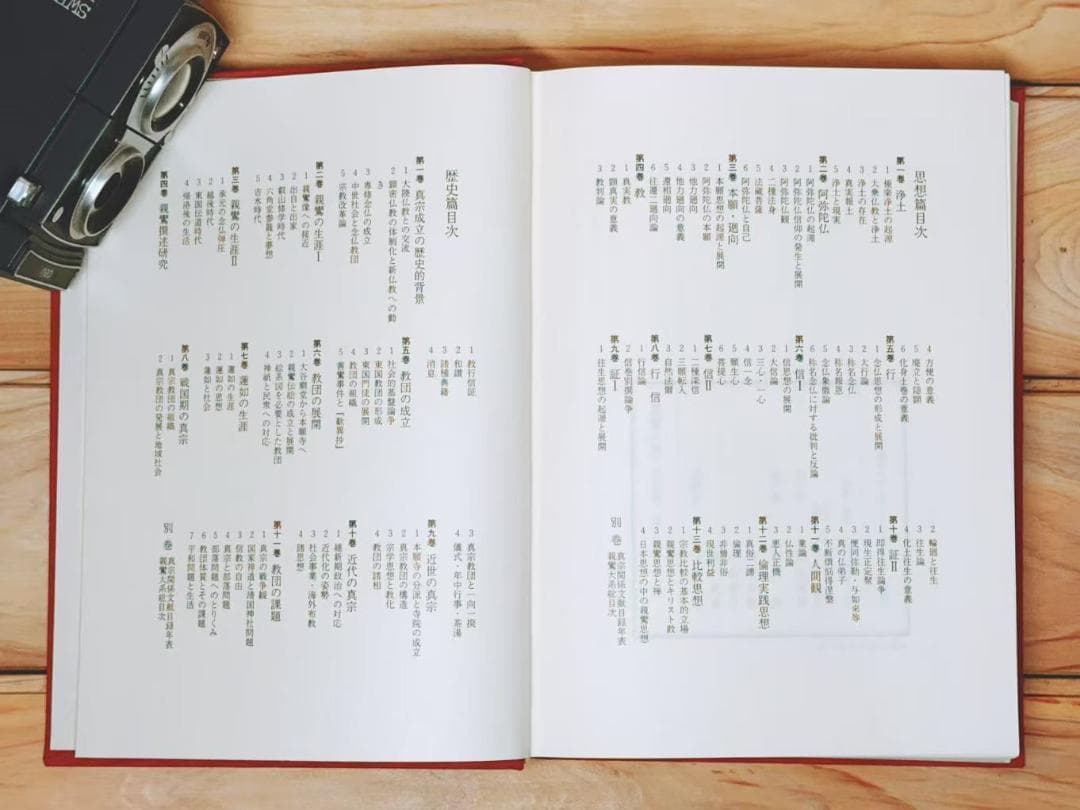 思想篇目次
第一巻 浄土
1 極楽浄土の起源
2 大乗仏教と浄土
3 浄土の存在
4 真実報土
5 浄土と現実
第二巻 阿弥陀仏
1 阿弥陀仏の起源
2 阿弥陀仏信仰の発生と展開
3 阿弥陀仏観
4 二種法身
5 法蔵菩薩
6 阿弥陀仏と自己
第三巻 本願・廻向
1 本願思想の起源と展開
2 阿弥陀仏の本願
3 他力廻向
4 他力廻向の意義
5 還相廻向
6 往還二廻向論
第四巻 教
1 真実教
2 顕真実の意義
3 教判論
4 方便の意義
5 廃立と隠顕
6 化身土巻の意義
第五巻 行
1 念仏思想の形成と展開
2 大行論
3 称名念仏
4 称名報恩
5 念仏象徴論
6 称名念仏に対する批判と反論
第六巻 信Ⅰ
1 信思想の展開
2 大信論
3 三心・一心
4 信一念
5 願生心
6 菩提心
第七巻 信Ⅱ
1 二種深信
2 三願転入
3 自然法爾
第八巻 行 信
1 行信論
2 信巻別撰論争
第九巻 証Ⅰ
1 往生思想の起源と展開
2 輪廻と往生
3 往生論
4 化土往生の意義
第十巻 証Ⅱ
1 即得往生論争
2 現生正定聚
3 便同弥勒・与如来等
4 真の仏弟子
5 不断煩悩得涅槃
第十一巻 人間観
1 業論
2 仏性論
3 悪人正機
第十二巻 倫理実践思想
1 真俗二諦
2 倫理
3 非僧非俗
4 現世利益
第十三巻 比較思想
1 宗教比較の基本的立場
2 親鸞思想とキリスト教
3 親鸞思想と禅
4 日本思想の中の親鸞思想
別 巻 真宗関係文献目録年表
親鸞大系総目次
歴史篇目次
第一巻 真宗成立の歴史的背景
1 大陸仏教との交流
2 顕密仏教の体制化と新仏教への動
き
3 専修念仏の成立
4 中世社会と念仏教団
5 宗教改革論
第二巻 親鸞の生涯Ⅰ
1 親鸞像への接近
2 出自と出家
3 叡山修学時代
4 六角堂参籠と夢想
5 吉水時代
第三巻 親鸞の生涯Ⅱ
1 承元の念仏弾圧
2 越後時代
3 東国伝道時代
4 帰洛後の生活
第四巻 親鸞撰述研究
1 教行信証
2 和讃
3 諸種典籍
4 消息
第五巻 教団の成立
1 社会的基盤論争
2 東国教団の形成
3 東国門徒の展開
4 教団の組織
5 善鸞事件と『歎異抄』
第六巻 教団の展開
1 大谷廟堂から本願寺へ
2 親鸞伝絵の成立と展開
3 絵系図を必要とした教団
4 神祇と民衆への対応
第七巻 蓮如の生涯
1 蓮如の生涯
2 蓮如の思想
3 蓮如と社会
第八巻 戦国期の真宗
1 真宗教団の組織
2 真宗教団の発展と地域社会
3 真宗教団と一向一揆
4 儀式・年中行事・茶湯
第九巻 近世の真宗
1 本願寺の分派と寺院の成立
2 真宗教団の構造
3 宗学思想と教化
4 教団の諸相
第十巻 近代の真宗
1 維新期政治への対応
2 近代化の姿勢
3 社会事業・海外布教
4 諸思想
第十一巻 教団の課題
1 真宗の戦争観
2 国家神道と靖国神社問題
3 信教の自由
4 真宗と部落問題
5 部落問題へのとりくみ
6 教団体質とその課題
7 平和問題と生活
別 巻 真宗関係文献目録年表
親鸞大系総目次